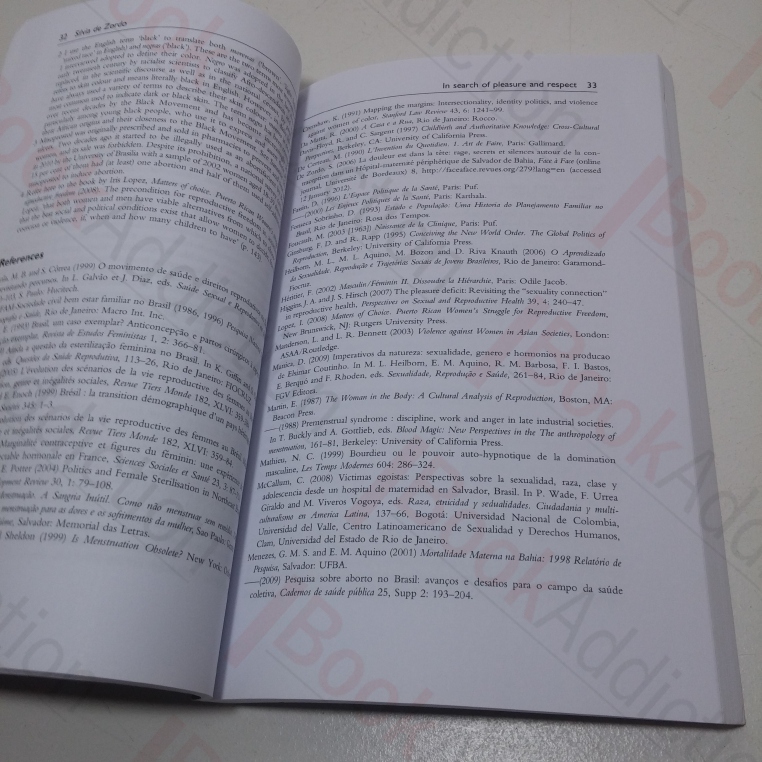 32 Silvia de Zordo
2 I use the English term 'black' to translate both
in English) and negro ('black'). These are the two terms
adopted to define their color. Negro was adopted in
century by racialist scientists to classify
in the scientific discourse as well as in the national
to skin colour and means literally black in English. However,
have always used a variety of terms to describe their skin colour
most common used to indicate dark or black skin. The term
over recent decades by the Black Movement and has become
particularly among young people, who use it to express
their African origins and their closeness to the Black Movement.
3 Misoprostol was originally prescribed and sold in pharmacies to
Two decades ago it started to be illegally used as an
and its sale was forbidden. Despite its prohibition, a national
in 2010 by the University of Brasilia with a sample of 2002 women aged
15 per cent of them had (at least) one abortion and half of them
misoprostol to induce abortion.
4 here to the book by Iris Lopez, Matters of choice. Puerto Rican Women's
freedom (2008). The precondition for reproductive freedom
Lopez, 'that both women and men have viable alternatives from which
that the best social and political conditions exist that allow women to
coercion or violence, if, when and how many children to have' (p.
References
M. B. and S. Côrrea (1999) O movimento de saúde e direitos reprodutivos
In L. Galvão et J. Díaz, eds. Saúde Sexual e Reprodutiva
S. Paulo, Hucitech.
Sociedade civil bem estar familiar no Brasil (1986, 1996) Pesquisa
e Saúde, Rio de Janeiro: Macro Int. Inc.
E. (1993) Brasil, um caso exemplar? Anticoncepção e partos cirúrgicos
Revista de Estudos Feministas 1, 2: 366–81.
Ainda a questão da esterilização feminina no Brasil. In K. Giffin
eds. Questões da Saúde Reprodutiva, 113–26, Rio de Janeiro: FIOCRUZ
(2005) L'évolution des scénarios de la vie reproductive des femmes
genre et inégalités sociales, Revue Tiers Monde 182, XLVI:
E. Enoch (1999) Brésil : la transition démographique d'un pays
345: 1–3.
des scénarios de la vie reproductive des femmes au Brésil
et inégalités sociales, Revue Tiers Monde 182, XLVI: 359–84.
Marginalité contraceptive et figures du féminin: une expérience
hormonale en France, Sciences Sociales et Santé 23, 3:
E. Potter (2004) Politics and Female Sterilisation in Northeast
Review 30, 1: 79–108.
A Sangria Inútil. Como não menstruar um
menstruação para as dores e os sofrimentos da mulher, Sao Paulo:
Salvador: Memorial das Letras.
Sheldon (1999) Is Menstruation Obsolete? New York:
In search of pleasure and respect 33
Crenshaw, K. (1991) Mapping the margins: Intersectionality, identity politics, and violence
against women of color, Stanford Law Review 43, 6: 1241–99.
Da Matta, R. (2000) A Casa e a Rua, Rio de Janeiro: Rocco.
Davis-Floyd, R. and C. Sargent (1997) Childbirth and Authoritative Knowledge: Cross-Cultural
Perspectives, Berkeley, CA: University of California Press.
De Certeau, M. (1990) L'Invention du Quotidien. 1. Art de Faire, Paris: Gallimard.
De Zordo, S. (2006) La douleur est dans la tête: rage, secrets et silences autour de la con-
traception dans un Hôpital-maternité périphérique de Salvador de Bahia, Face à Face (online
journal, Université de Bordeaux) 8, http://faceaface.revues.org/279?lang=en (accessed
12 January 2012).
Fassin, D. (1996) L'Espace Politique de la Santé, Paris: Puf.
——(2000) Les Enjeux Politiques de la Santé, Paris: Karthala.
Fonseca Sobrinho, D. (1993) Estado e População. Uma Historia do Planejamento Familiar no
Brasil, Rio de Janeiro: Rosa dos Tempos.
Foucault, M. (2003 [1963]) Naissance de la Clinique, Paris: Puf.
Ginsburg, F. D. and R. Rapp (1995) Conceiving the New World Order. The Global Politics of
Reproduction, Berkeley: University of California Press.
Heilborn, M. L., M. L. Aquino, M. Bozon and D. Riva Knauth (2006) O Aprendizado
da Sexualidade. Reprodução e Trajetórias Sociais de Jovens Brasileiros, Rio de Janeiro: Garamond-
Fiocruz.
Héritier, F. (2002) Masculin/Féminin II. Dissoudre la Hiérarchie, Paris: Odile Jacob.
Higgins, J. A. and J. S. Hirsch (2007) The pleasure deficit: Revisiting the "sexuality connection"
in reproductive health, Perspectives on Sexual and Reproductive Health 39, 4: 240–47.
Lopez, I. (2008) Matters of Choice. Puerto Rican Women's Struggle for Reproductive Freedom,
New Brunswick, NJ: Rutgers University Press.
Manderson, L. and L. R. Bennett (2003) Violence against Women in Asian Societies, London:
ASAA-Routledge.
Manica, D. (2009) Imperativos da natureza: sexualidade, genero e hormonios na producao
de Elsimar Coutinho. In M. L. Heilborn, E. M. Aquino, R. M. Barbosa, F. I. Bastos,
E. Berquó and F. Rhoden, eds. Sexualidade, Reprodução e Saúde, 261–84, Rio de Janeiro:
FGV Editora.
Martin, E. (1987) The Woman in the Body: A Cultural Analysis of Reproduction, Boston, MA:
Beacon Press.
——(1988) Premenstrual syndrome : discipline, work and anger in late industrial societies.
In T. Buckly and A. Gottlieb, eds. Blood Magic: New Perspectives in the The anthropology of
menstruation, 161–81, Berkeley: University of California Press.
Mathieu, N. C. (1999) Bourdieu ou le pouvoir auto-hypnotique de la domination
masculine, Les Temps Modernes 604: 286–324.
McCallum, C. (2008) Victimas egoistas: Perspectivas sobre la sexualidad, raza, clase y
adolescencia desde un hospital de maternidad en Salvador, Brasil. In P. Wade, F. Urrea
Giraldo and M. Viveros Vogoya, eds. Raza, etnicidad y sedualidades. Ciudadania y multi-
culturalismo en America Latina, 137–66, Bogotá: Universidad Nacional de Colombia,
Universidad del Valle, Centro Latinoamericano de Sexualidad y Derechos Humanos,
Clam, Universidad del Estado de Rio de Janeiro.
Menezes, G. M. S. and E. M. Aquino (2001) Mortalidade Materna na Bahia: 1998 Relatório de
Pesquisa, Salvador: UFBA.
——(2009) Pesquisa sobre aborto no Brasil: avanços e desafios para o campo da saúde
coletiva, Cadernos de saúde pública 25, Supp 2: 193–204.
BookAddiction